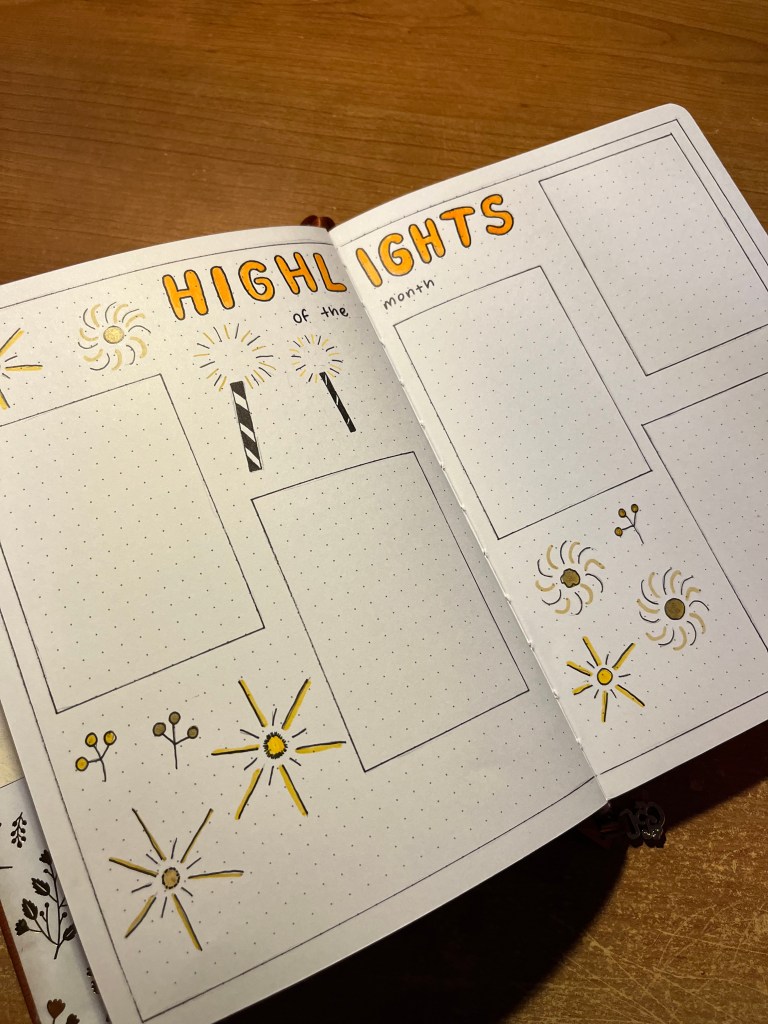 HIGHLIGHTS
of the month